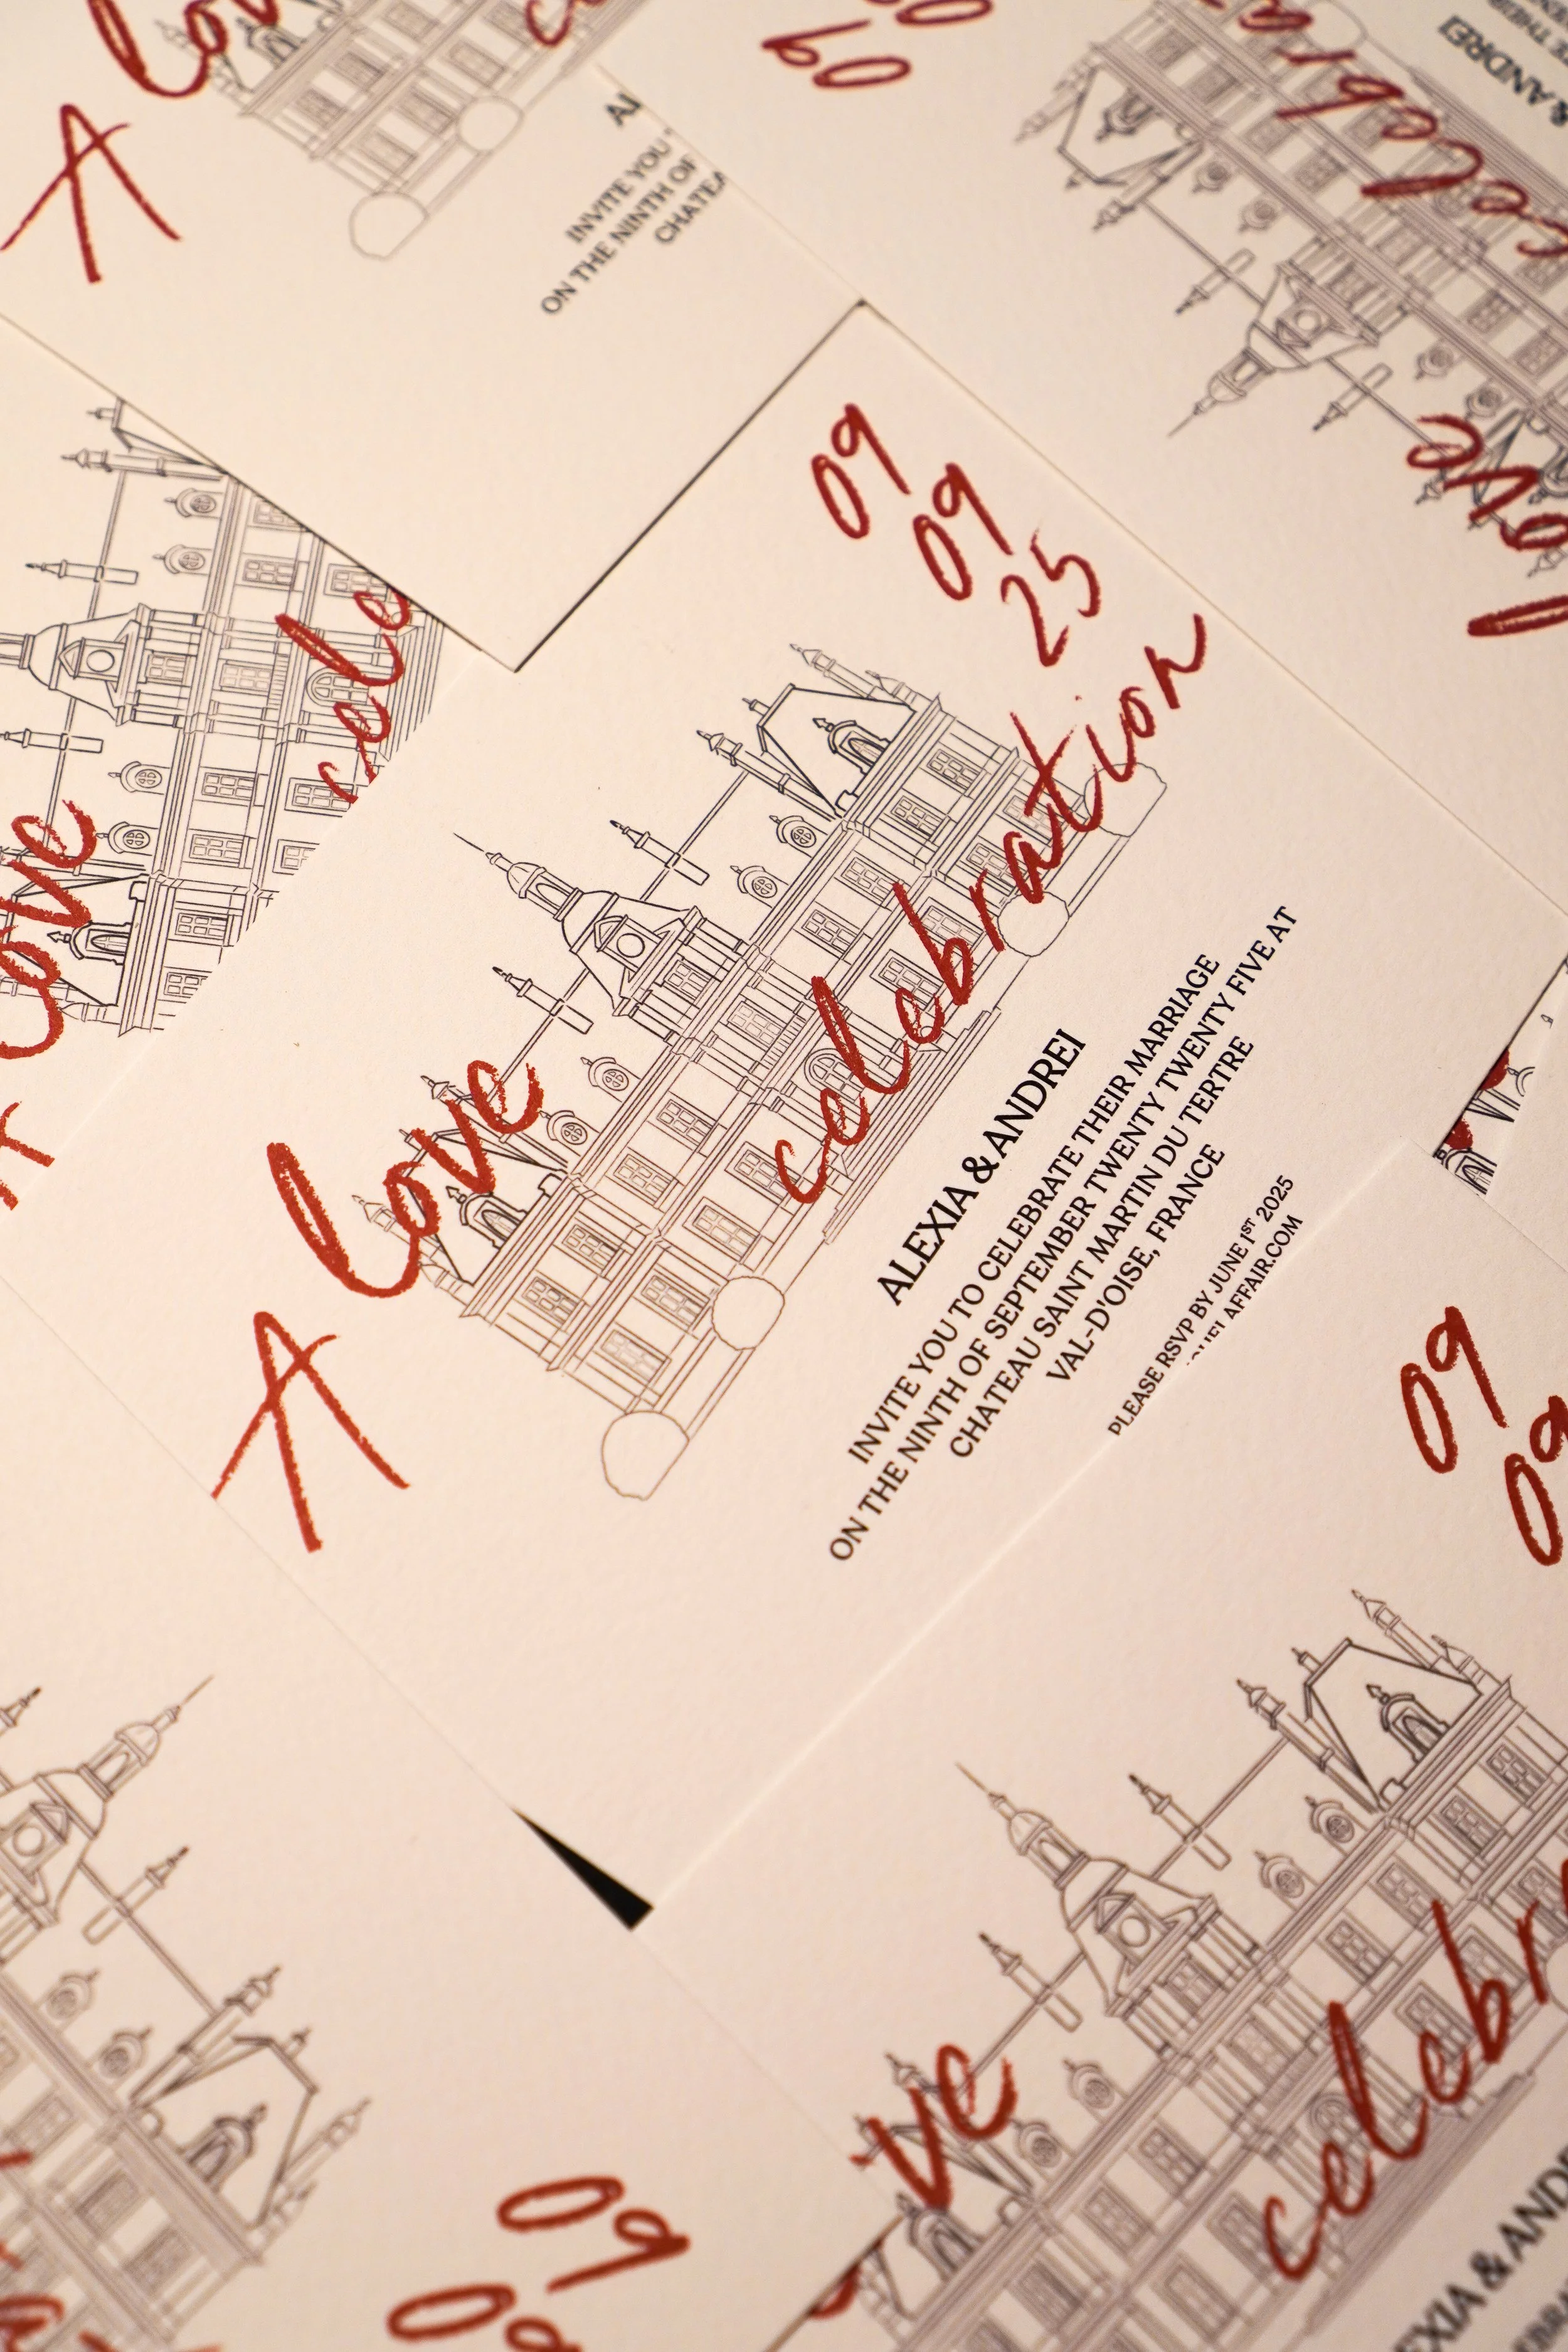 A love
celebration
09
09
25
ALEXIA & ANDREI
INVITE YOU TO CELEBRATE THEIR MARRIAGE
ON THE NINTH OF SEPTEMBER TWENTY TWENTY FIVE AT
CHATEAU SAINT MARTIN DU TERTRE
VAL-D'OISE, FRANCE
PLEASE RSVP BY JUNE 1ST 2025
A
INVITE YOU
ON THE NINTH OF
09
09
& ANDREI
love
love
09
09
ve
celebr
09